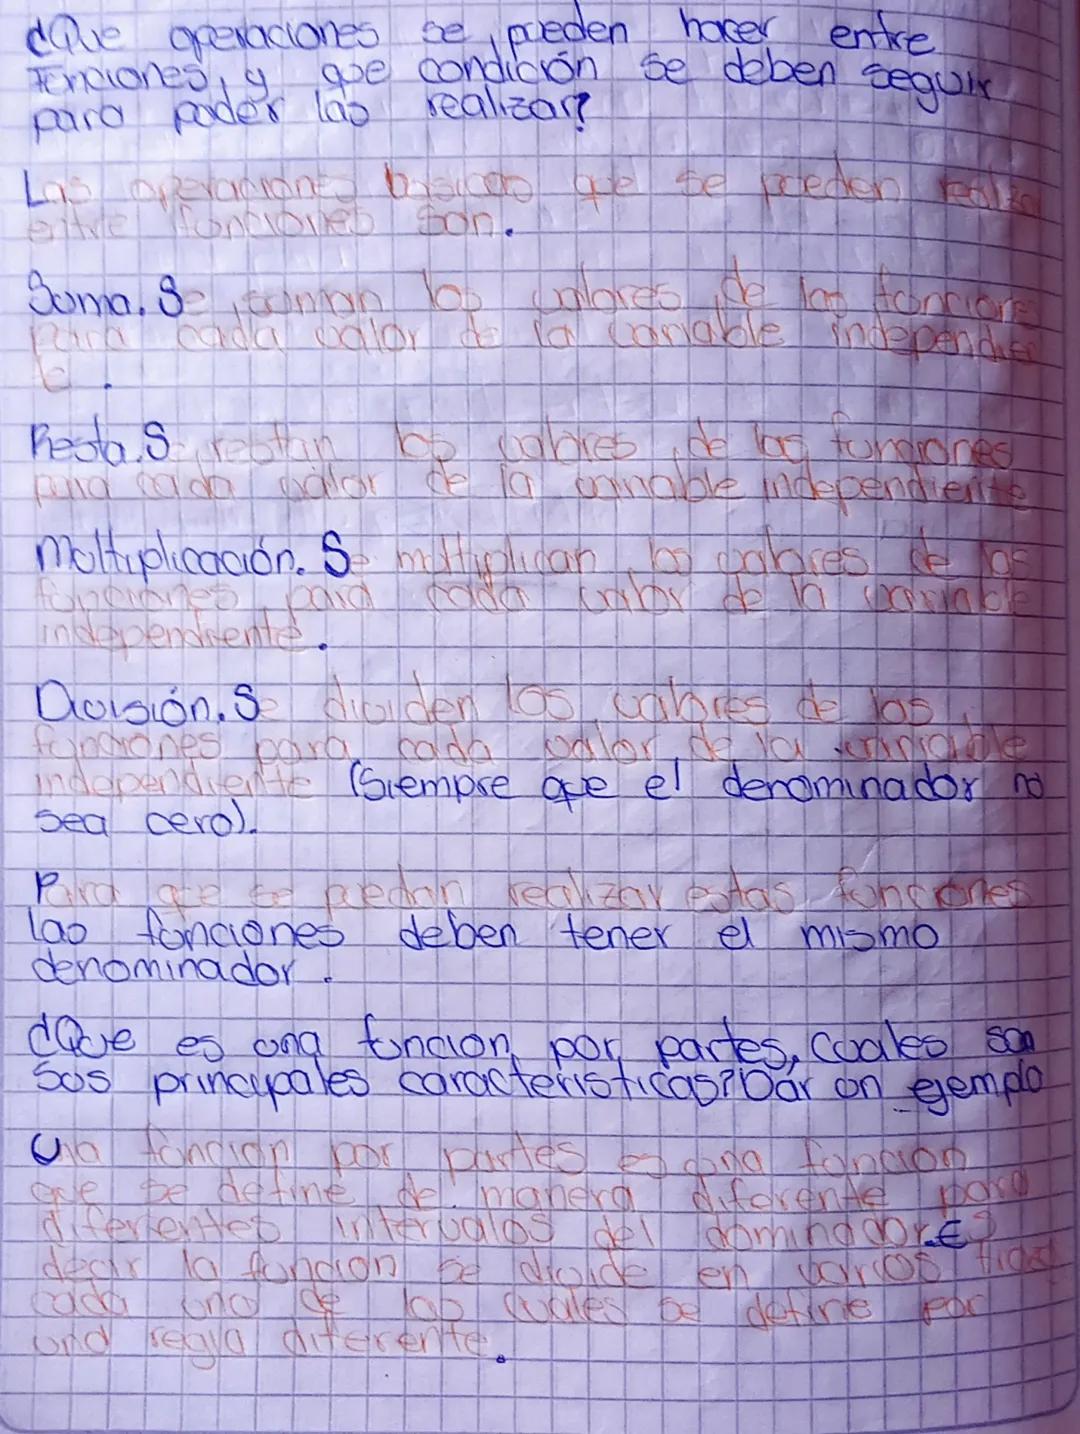 ¿Que operaciones se pueden hacer entre
Funciones, y que condición se deben seguir
para poder las realizar?
Las operaciones basicas que se pueden realiza
entre funciones son.
Suma. Se suman los valores de las funcione
para cada valor de la variable independien
te.
Resta. Se restan los valores de las funciones
para cada valor de la variable independiente
Moltiplicación. Se moltiplican los valores de las
funciones para cada valor de la variable
independiente.
División. Se dividen los valores de las
funciones para cada valor de la variable
independiente (Siempre que el denominador no
sea cero).
Para que se puedan realizar estas funciones
las funciones deben tener el mismo
denominador.
¿Que es una funcion por partes, Cuales son
sus principales caracteristicas? Dar un ejemplo
Una funcion por partes es una funcion
que se define de manera diferente para
diferentes intervalos del dominador. Es
decir la funcion se divide en varios
cada uno de las cuales se define por
und regla diferente.